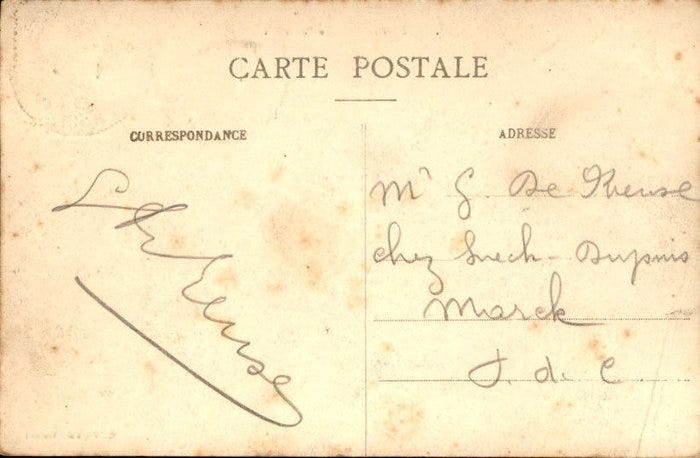 CARTE POSTALE
CORRESPONDANCE
ADRESSE
Mr G. De Kreuse
chez Dupuis
Marck
P. d. C